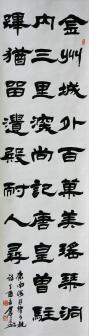 金州城外百菓美瑤琴洞
内三里溪尚記唐皇曾駐
蹕猶留遺殿耐人尋